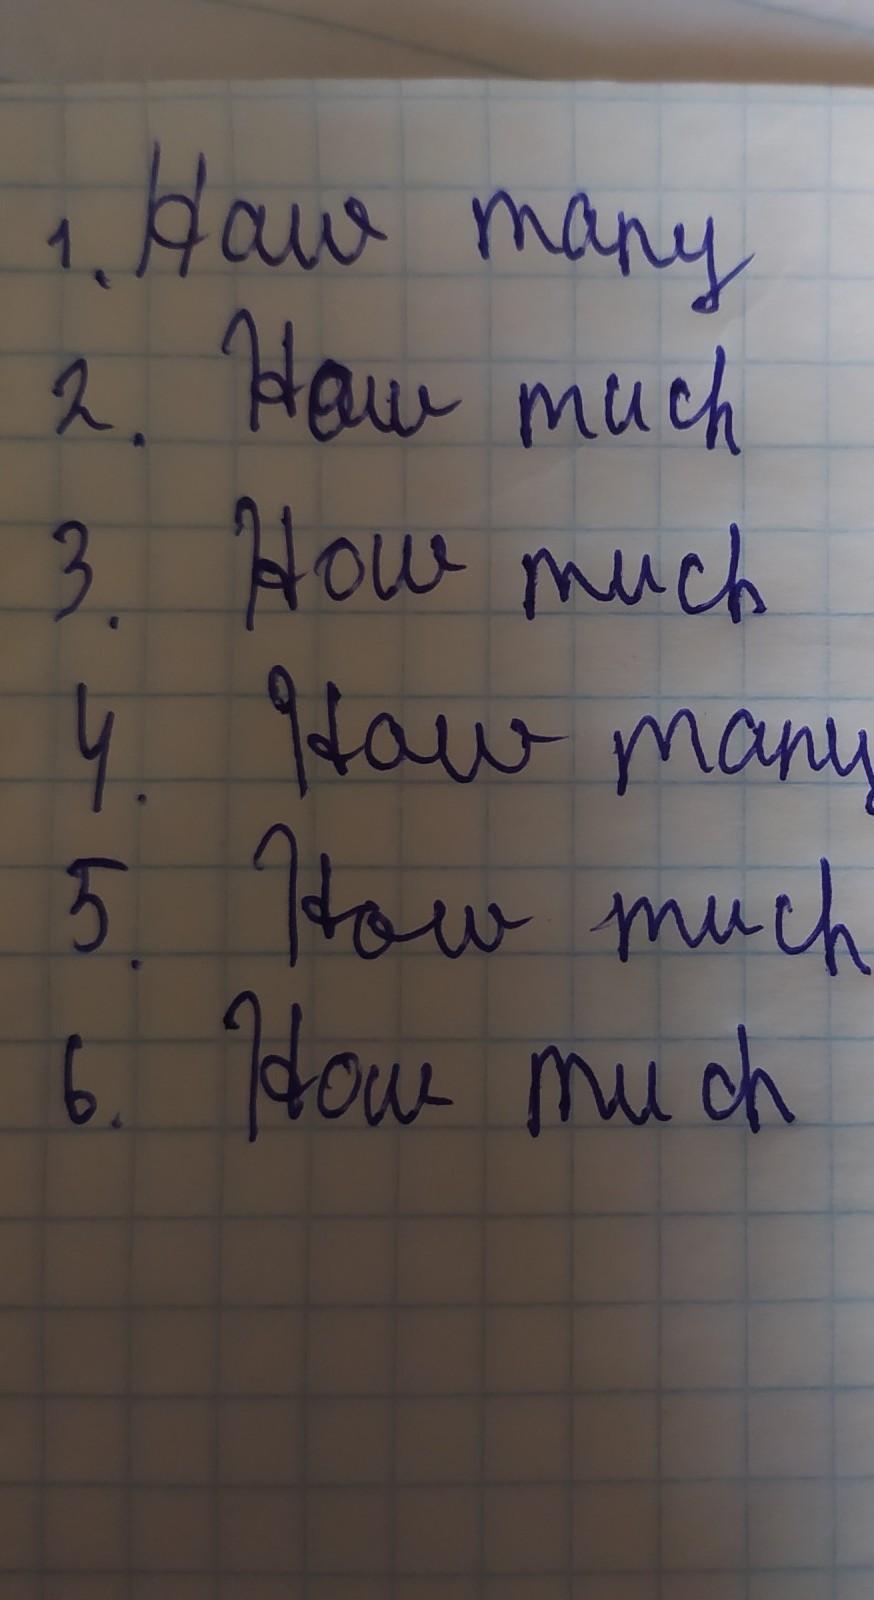 1. How many
2. How much
3. How much
4. How many
5. How much
6. How much